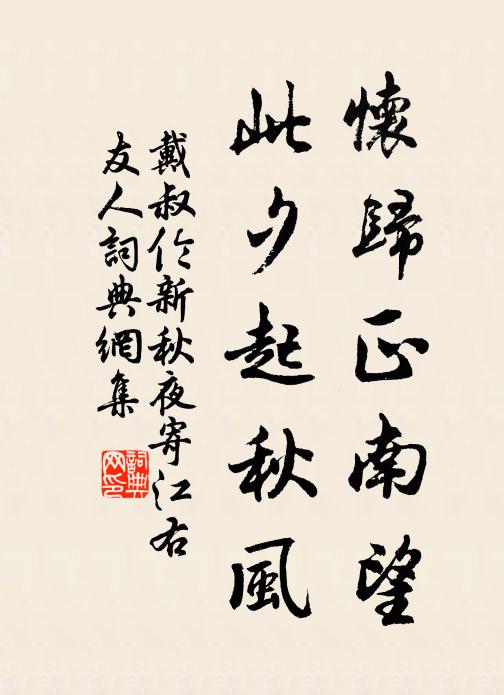 懷歸正南望
此夕起秋風
戴叔伦新秋夜寄江右
友人詞典網集
詞典网印